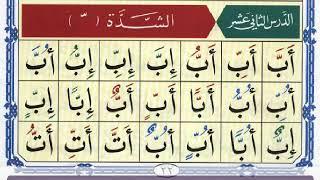 الدَّرْسُ الثَّانِي عَشَر
الشَّدَّة ( ّ )
أَبَّ أَبِّ أَبُّ إِبَّ إِبِّ إِبُّ أُبَّ
أُبِّ أُبُّ أَبًّا أَبٍّ أَبٌّ إِبًّا إِبٍّ
إِبٌّ أُبًّا أُبٍّ أُبٌّ أَتَّ أَتِّ أَتُّ
٢٢